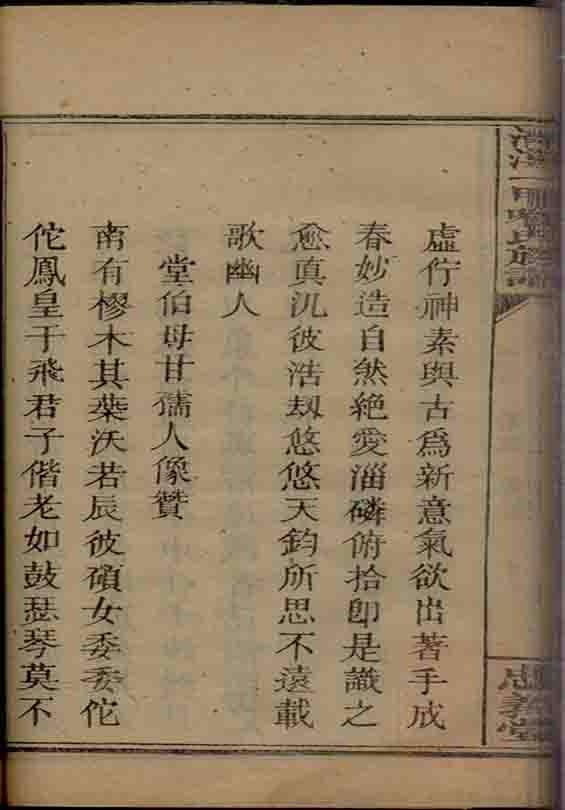 氏族譜
虛佇神素與古爲新意氣欲出著手成
春妙造自然絕愛淄磷俯拾卽是識之
愈真汎彼浩刼悠悠天鈞所思不遠載
歌幽人
堂伯母甘孺人像贊
南有樛木其葉沃若辰彼碩女委委佗
佗鳳皇于飛君子偕老如鼓瑟琴莫不